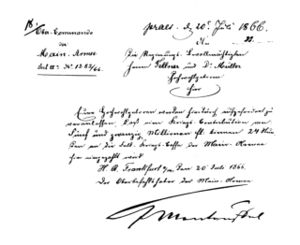 praes. d. 20. Juli 1866.
Ober-Commando
der
Main-Armee
Die Regierungs-Bevollmächtigten
Herrn Fellner und Dr. Müller
Hochwohlgeboren
hier
Eure Hochwohlgeboren werden hierdurch aufgefordert zu
veranlassen, daß eine Kriegs-Contribution von
Fünf und zwanzig Millionen fl. binnen 24 Stun
den an die Feld-Kriegs-Casse der Main-Armee
hier eingezahlt werde.
H. Q. Frankfurt a/m den 20 Juli 1866.
Der Oberbefehlshaber der Main-Armee